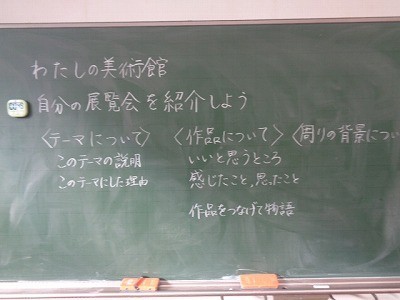 わたしの美術館
自分の展覧会を紹介しよう
〈テーマについて〉
このテーマの説明
このテーマにした理由
〈作品について〉
いいと思うところ
感じたこと,思ったこと
作品をつなげて物語
〈周りの背景につい